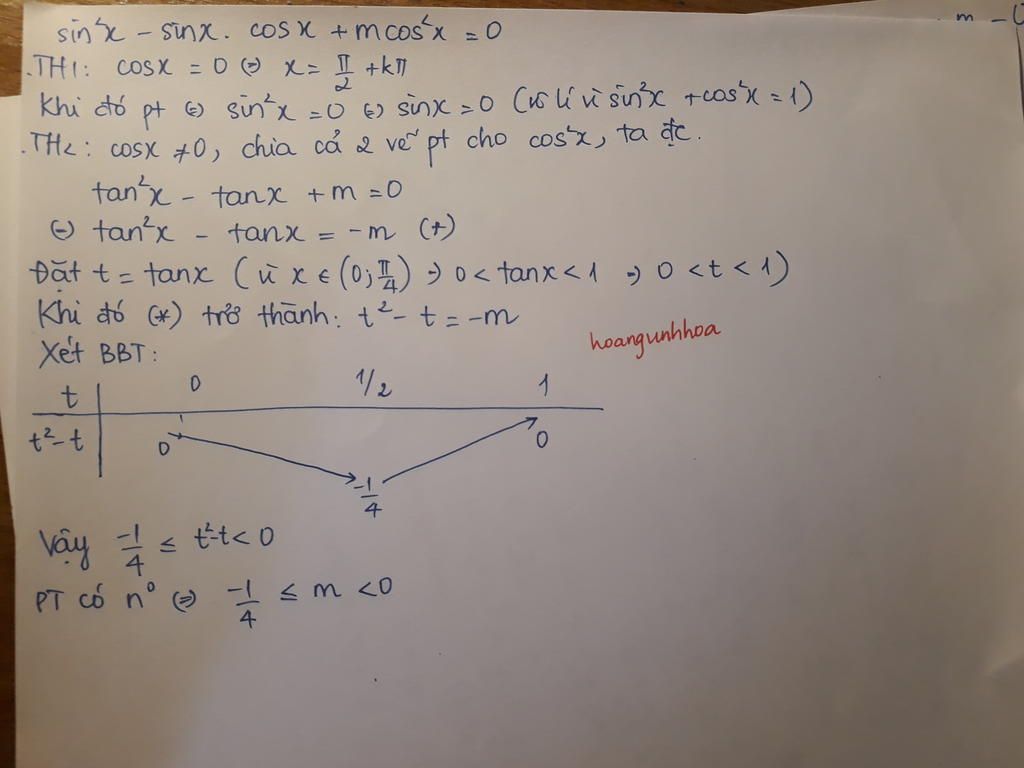 m - (
sin²x - sinx. cosx + mcos²x = 0
.TH1: cosx = 0 ⇔ x = π/2 + kπ
Khi đó pt ⇔ sin²x = 0 ⇔ sinx = 0 (vô lí vì sin²x + cos²x = 1)
.TH2: cosx ≠ 0, chia cả 2 vế pt cho cos²x, ta đc.
tan²x - tanx + m = 0
⇔ tan²x - tanx = -m (*)
Đặt t = tanx (vì x ∈ (0; π/4) → 0 < tanx < 1 → 0 < t < 1)
Khi đó (*) trở thành: t² - t = -m
hoangunhhoa
Xét BBT:
t 0 1/2 1
t² - t 0 -1/4 0
Vậy -1/4 ≤ t² - t < 0
PT có n⁰ ⇔ -1/4 ≤ m < 0